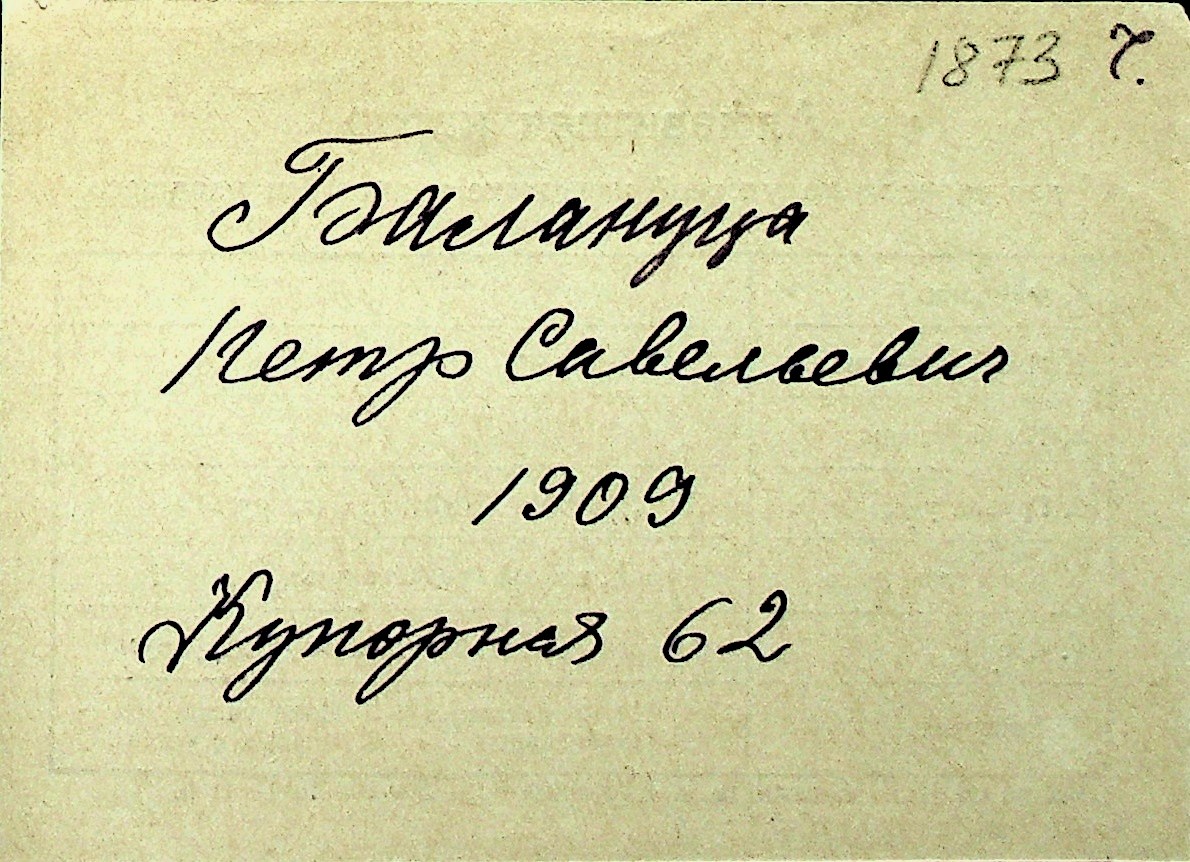 1873 Ч.
Балануца
Петр Савельевич
1909
Купорная 62